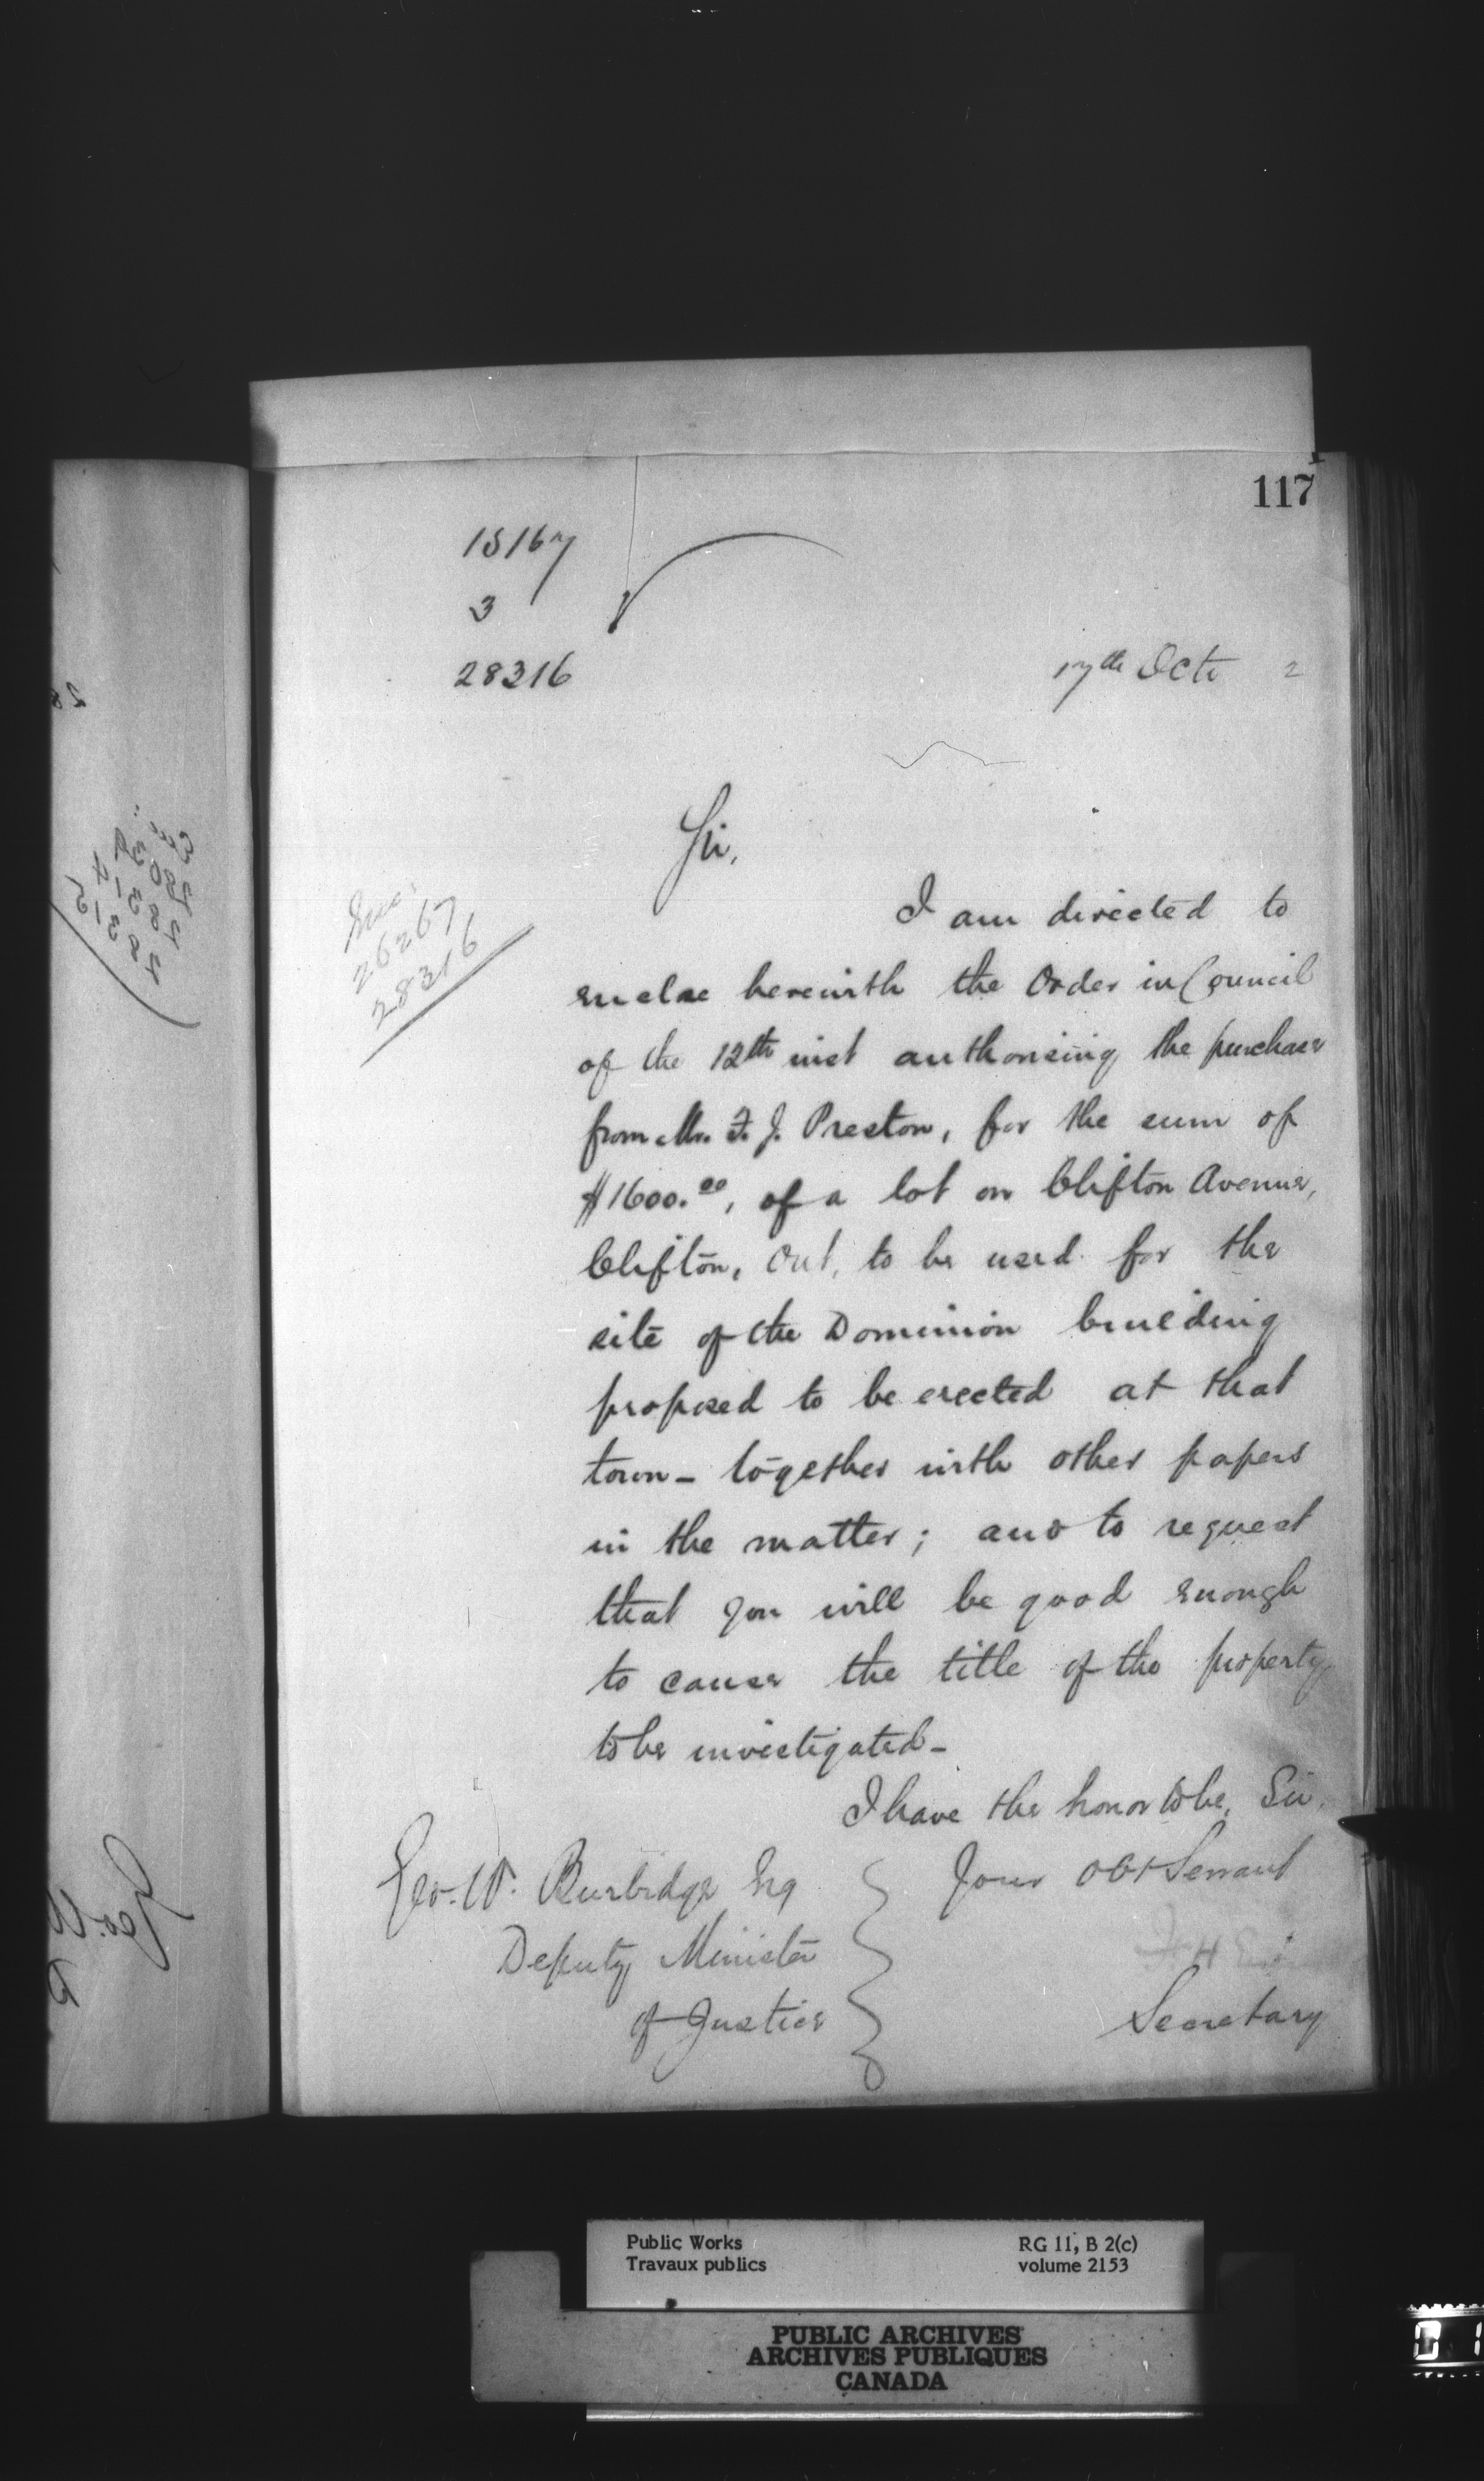 117
15167
3
28316
17th Oct 2
Sir,
26267
28316
I am directed to
enclose herewith the Order in Council
of the 12th inst authorising the purchase
from Mr. F. J. Preston, for the sum of
$1600.00, of a lot on Clifton Avenue,
Clifton, Ont, to be used for the
site of the Dominion building
proposed to be erected at that
town - together with other papers
in the matter; and to request
that you will be good enough
to cause the title of the property
to be investigated -
I have the honor to be, Sir,
Your obt Servant
Geo. W. Burbidge Esq
Deputy Minister
of Justice
Secretary
Public Works
Travaux publics
RG 11, B 2(c)
volume 2153
PUBLIC ARCHIVES
ARCHIVES PUBLIQUES
CANADA